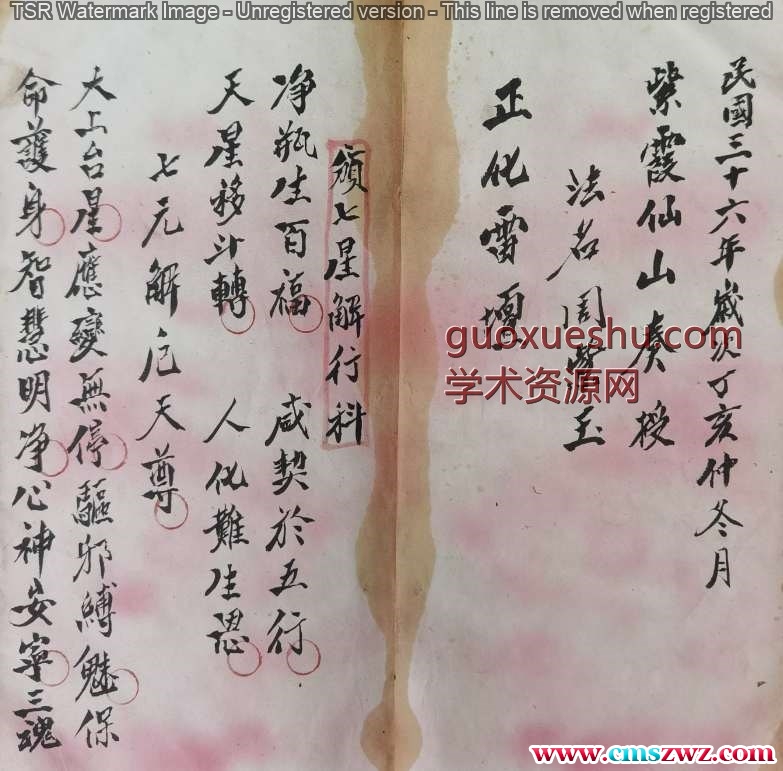 TSR Watermark Image - Unregistered version - This line is removed when registered
民國三十六年歲次丁亥仲冬月
紫霞仙山奏授
法名周 玉
正化雷壇
頒七星解行科
净瓶生百福 咸契於五行
天星移斗轉 人化難生恩
七元解厄天尊
大上台星應變無停驅邪縛魅保
命護身智慧明净心神安寧三魂
guoxueshu.com
学术资源网
www.cmszwz.com